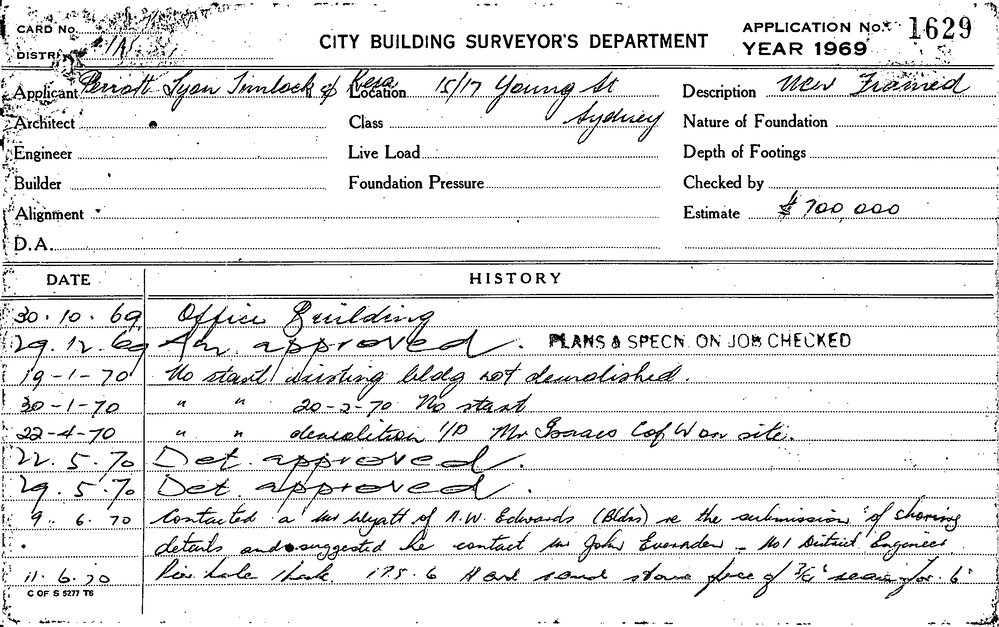 CARD No.
CITY BUILDING SURVEYOR'S DEPARTMENT
APPLICATION No. 1629
DISTRICT
YEAR 1969
Applicant Perrott Lyon Timlock & Kesa Location 15/17 Young St Sydney Description New Framed
Architect Class Nature of Foundation
Engineer Live Load Depth of Footings
Builder Foundation Pressure Checked by
Alignment Estimate $700,000
D.A.
DATE HISTORY
30.10.69 Office Building
29.12.69 Am. approved. PLANS & SPECN. ON JOB CHECKED
19-1-70 No start existing bldg not demolished.
30-1-70 " " 20-2-70 No start
22-4-70 " " demolition I/P Mr Isaacs C of W on site.
22.5.70 Det. approved.
29.5.70 Det. approved.
9.6.70 Contacted a Mr Wyatt of A.W. Edwards (Bldrs) re the submission of shoring
details and suggested he contact Mr John Evernden - No 1 District Engineer
11.6.70 Pier hole 175.6 Hard sand stone free of seams for 6'
C OF S 5277 T6